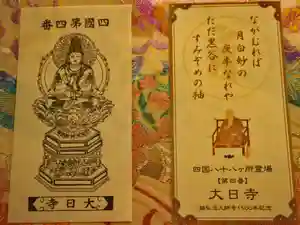 四國第四番
大日寺
ながむれば
月白妙の
夜半なれや
ただ黒谷に
すみぞめの袖
四国八十八ヶ所霊場
【第四番】
大日寺